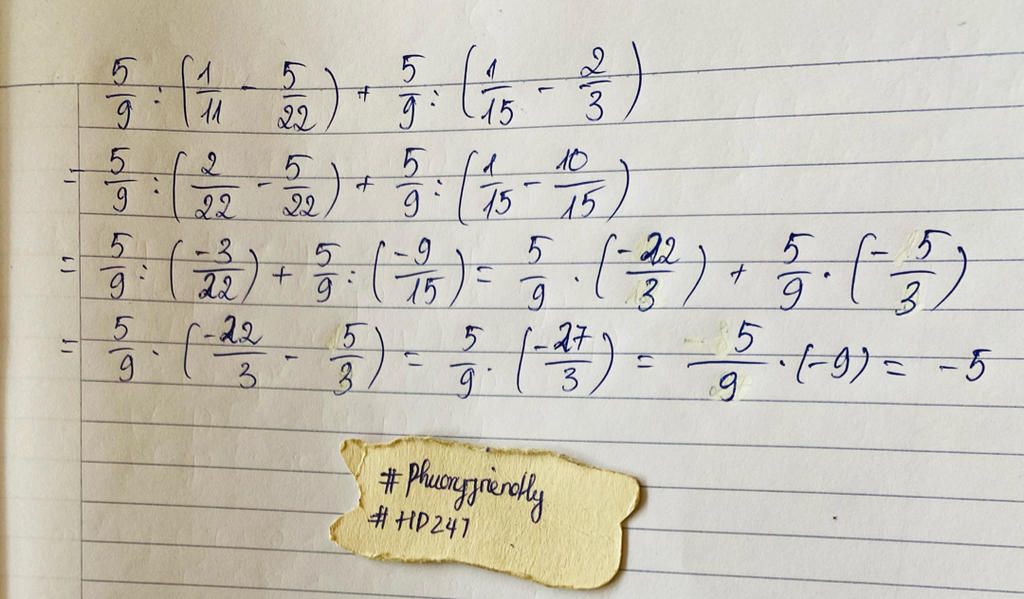 5/9 : (1/11 - 5/22) + 5/9 : (1/15 - 2/3)
= 5/9 : (2/22 - 5/22) + 5/9 : (1/15 - 10/15)
= 5/9 : (-3/22) + 5/9 : (-9/15) = 5/9 . (-22/3) + 5/9 . (-5/3)
= 5/9 . (-22/3 - 5/3) = 5/9 . (-27/3) = 5/9 . (-9) = -5
#Phuongfriendly
#HD247